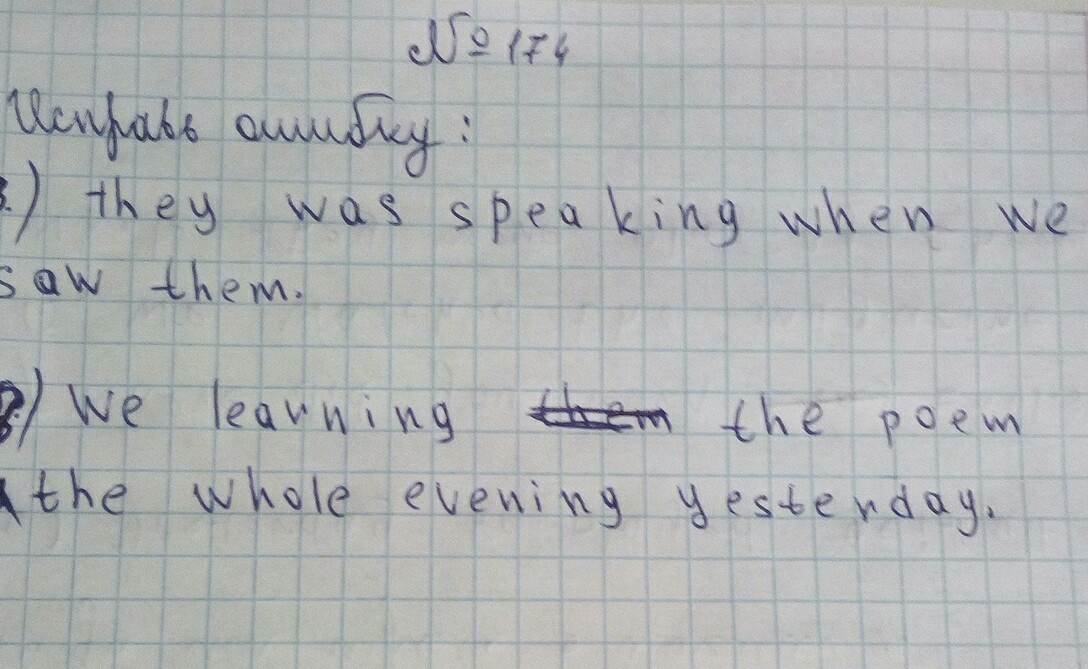 № 174
Исправь ошибку:
.) they was speaking when we
saw them.
) We learning the poem
the whole evening yesterday.